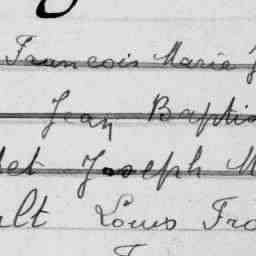 François Marie J
Jean Baptis
det Joseph M
ult Louis Fra